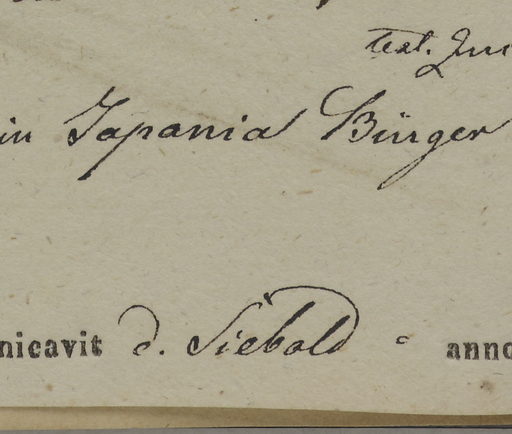 test. Zuc
in Japania Bürger
nicavit d. Siebold anno